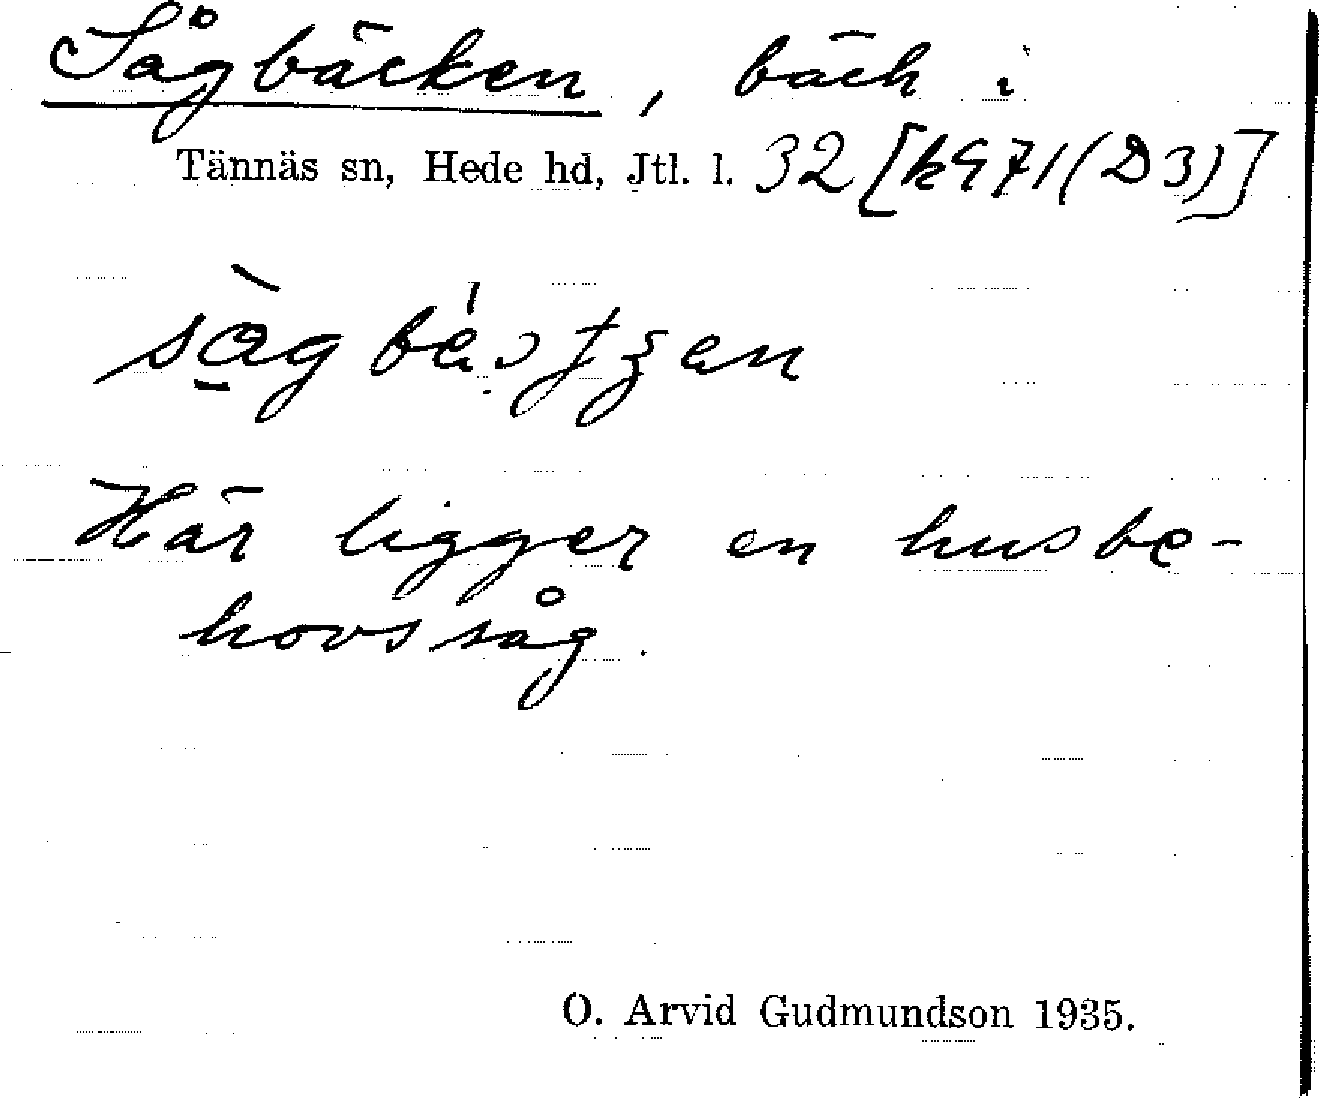 Sågbäcken, bäck i
Tännäs sn, Hede hd, Jtl. l. 32 [k971(D3)]
Här ligger en husbe-
hovssåg.
O. Arvid Gudmundson 1935.